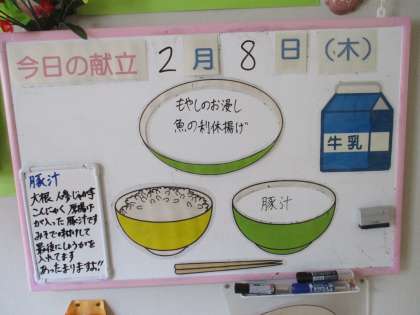 今日の献立 2月8日(木)
もやしのお浸し
魚の利休揚げ
牛乳
豚汁
豚汁
大根 人参 じゃが芋
こんにゃく 厚揚げ
が入った豚汁です
みそで味付けして
最後にしょうがを
入れてます
あったまりますよ!!